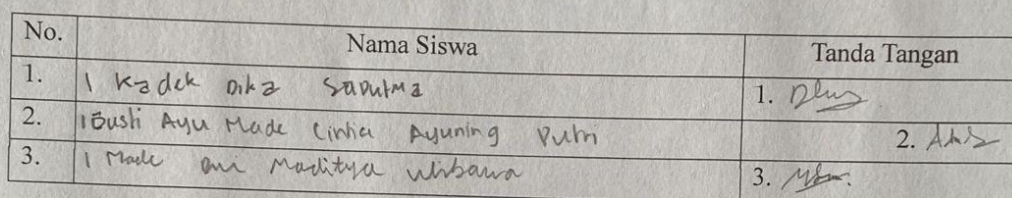 No. Nama Siswa Tanda Tangan
1. I Kadek Dika Saputra 1.
2. I Gusti Ayu Made Cintia Ayuning Putri 2.
3. I Made Ari Maditya Wibawa 3.